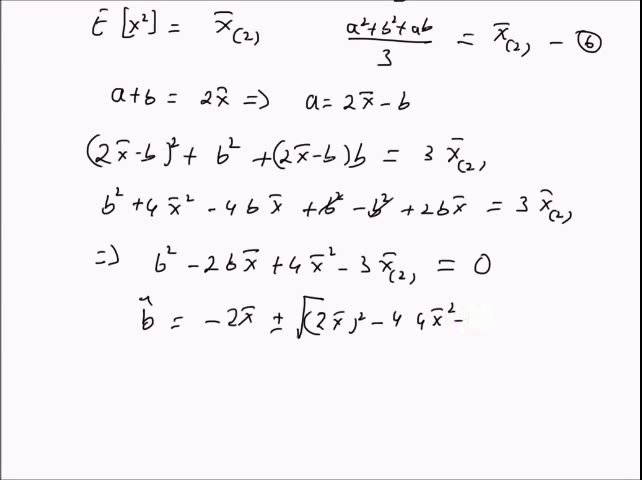 E [x²] = x̄₍₂₎ (a²+b²+ab)/3 = x̄₍₂₎ - ⑥
a+b = 2x̄ => a = 2x̄ - b
(2x̄-b)² + b² + (2x̄-b)b = 3 x̄₍₂₎
b² + 4x̄² - 4bx̄ + b² - b² + 2bx̄ = 3 x̄₍₂₎
=> b² - 2bx̄ + 4x̄² - 3x̄₍₂₎ = 0
b̂ = -2x̄ ± √(2x̄)² - 4 4x̄² -